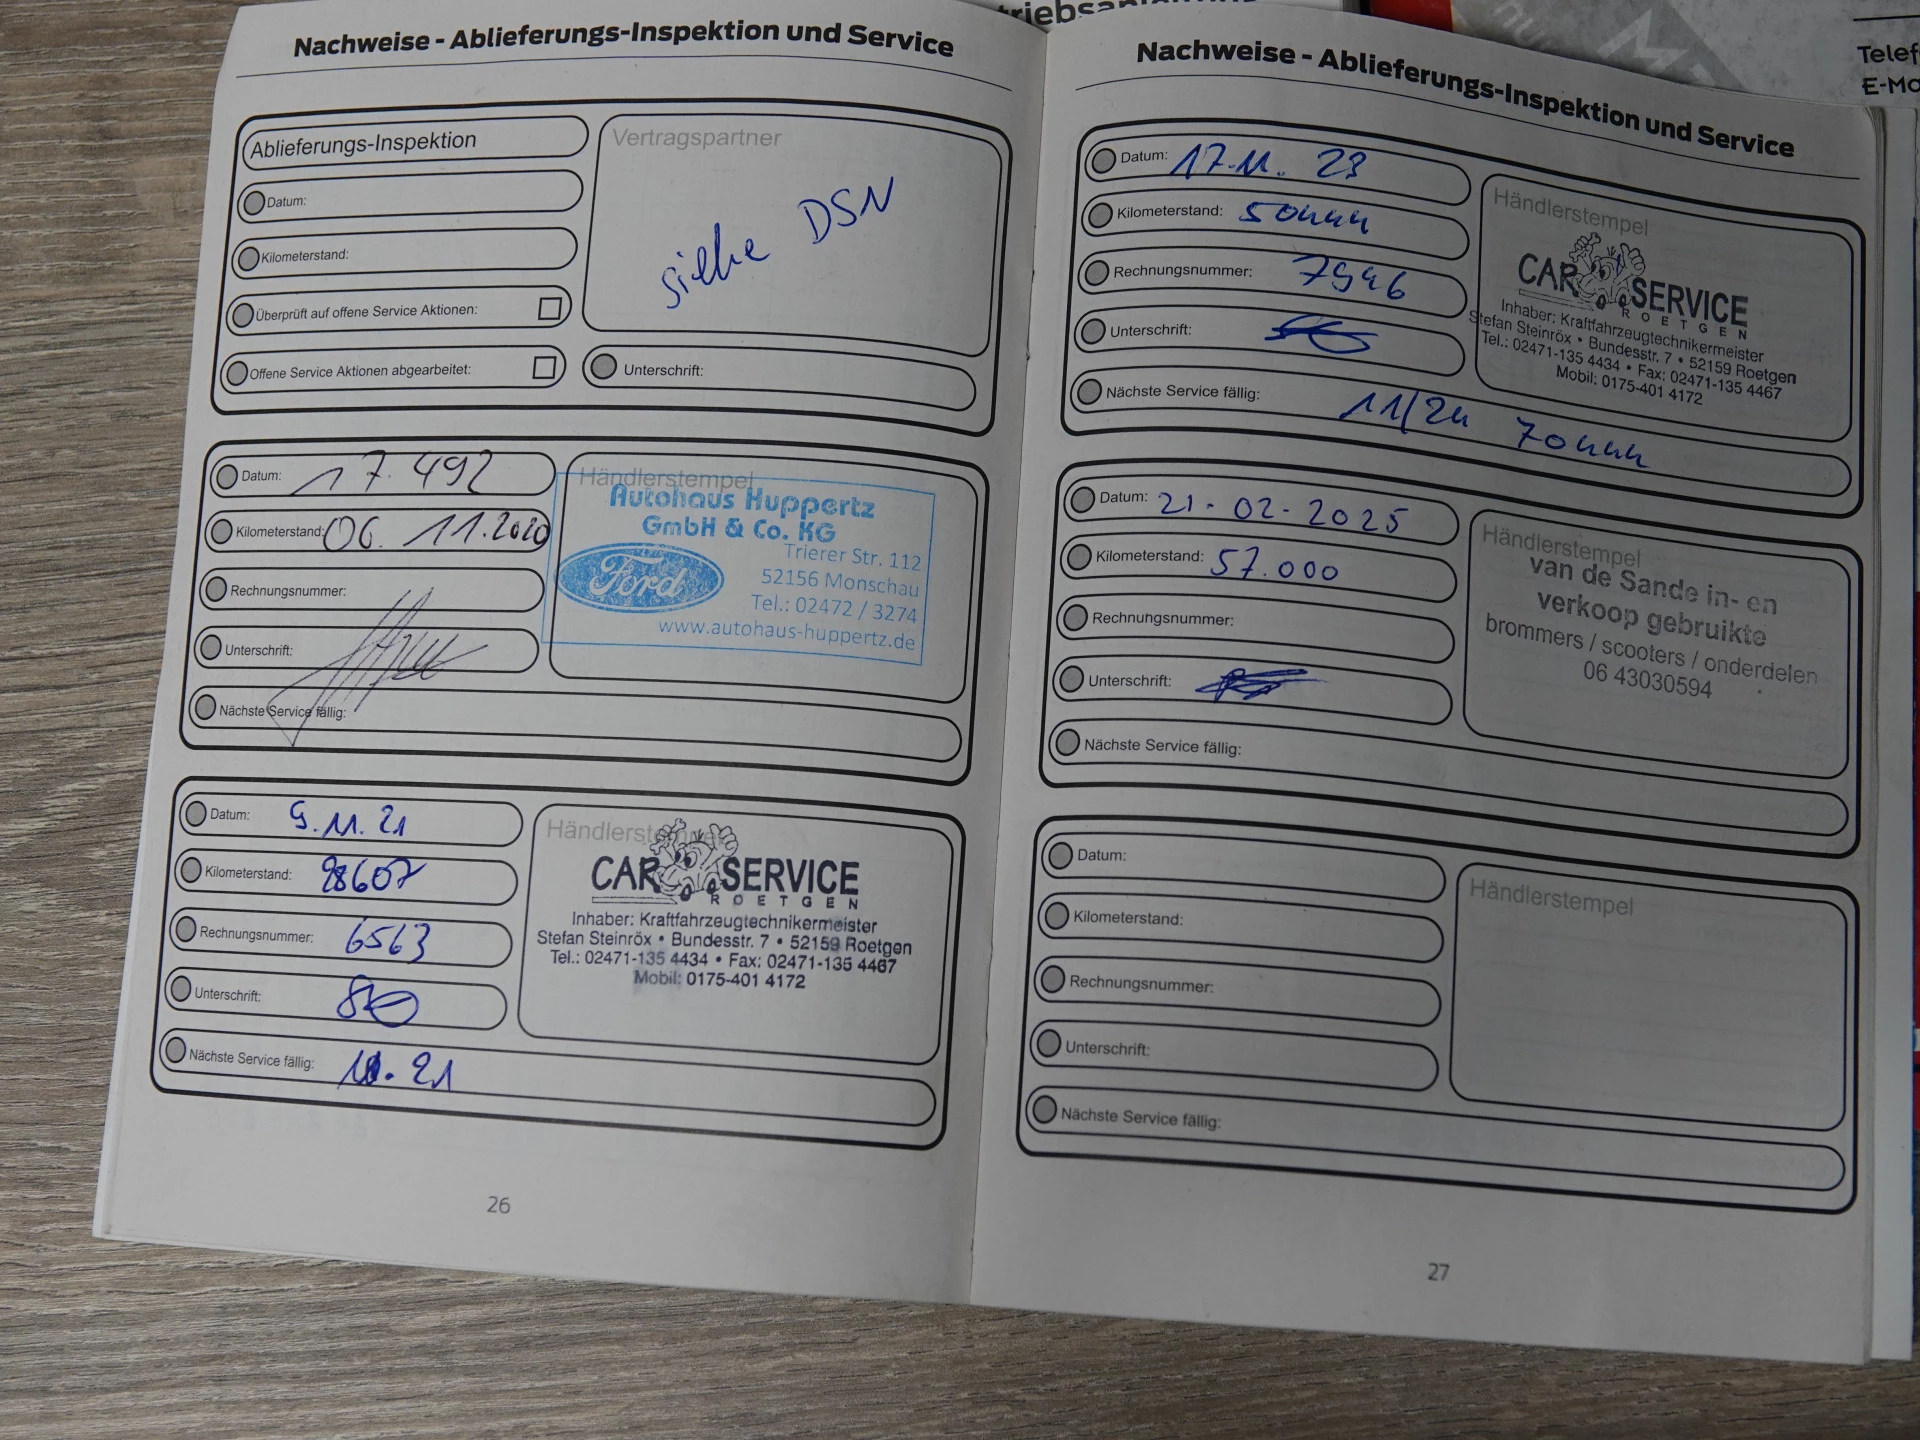 Nachweise - Ablieferungs-Inspektion und Service
Ablieferungs-Inspektion
Datum:
Kilometerstand:
Überprüft auf offene Service Aktionen:
Offene Service Aktionen abgearbeitet:
Vertragspartner
siehe DSN
Unterschrift:
Datum: 17.492
Kilometerstand: 06. 11.2020
Rechnungsnummer:
Unterschrift:
Nächste Service fällig:
Händlerstempel
Autohaus Huppertz
GmbH & Co. KG
Ford
Trierer Str. 112
52156 Monschau
Tel.: 02472 / 3274
www.autohaus-huppertz.de
Datum: 9.11.21
Kilometerstand: 28607
Rechnungsnummer: 6563
Unterschrift:
Nächste Service fällig: 11.21
Händlerstempel
CAR SERVICE
ROETGEN
Inhaber: Kraftfahrzeugtechnikermeister
Stefan Steinröx • Bundesstr. 7 • 52159 Roetgen
Tel.: 02471-135 4434 • Fax: 02471-135 4467
Mobil: 0175-401 4172
26
Nachweise - Ablieferungs-Inspektion und Service
Datum: 17.11.23
Kilometerstand: 50444
Rechnungsnummer: 7946
Unterschrift:
Nächste Service fällig: 11/24 70444
Händlerstempel
CAR SERVICE
ROETGEN
Inhaber: Kraftfahrzeugtechnikermeister
Stefan Steinröx • Bundesstr. 7 • 52159 Roetgen
Tel.: 02471-135 4434 • Fax: 02471-135 4467
Mobil: 0175-401 4172
Datum: 21-02-2025
Kilometerstand: 57.000
Rechnungsnummer:
Unterschrift:
Nächste Service fällig:
Händlerstempel
van de Sande in- en
verkoop gebruikte
brommers / scooters / onderdelen
06 43030594
Datum:
Kilometerstand:
Rechnungsnummer:
Unterschrift:
Nächste Service fällig:
Händlerstempel
27
Telef
E-Mo